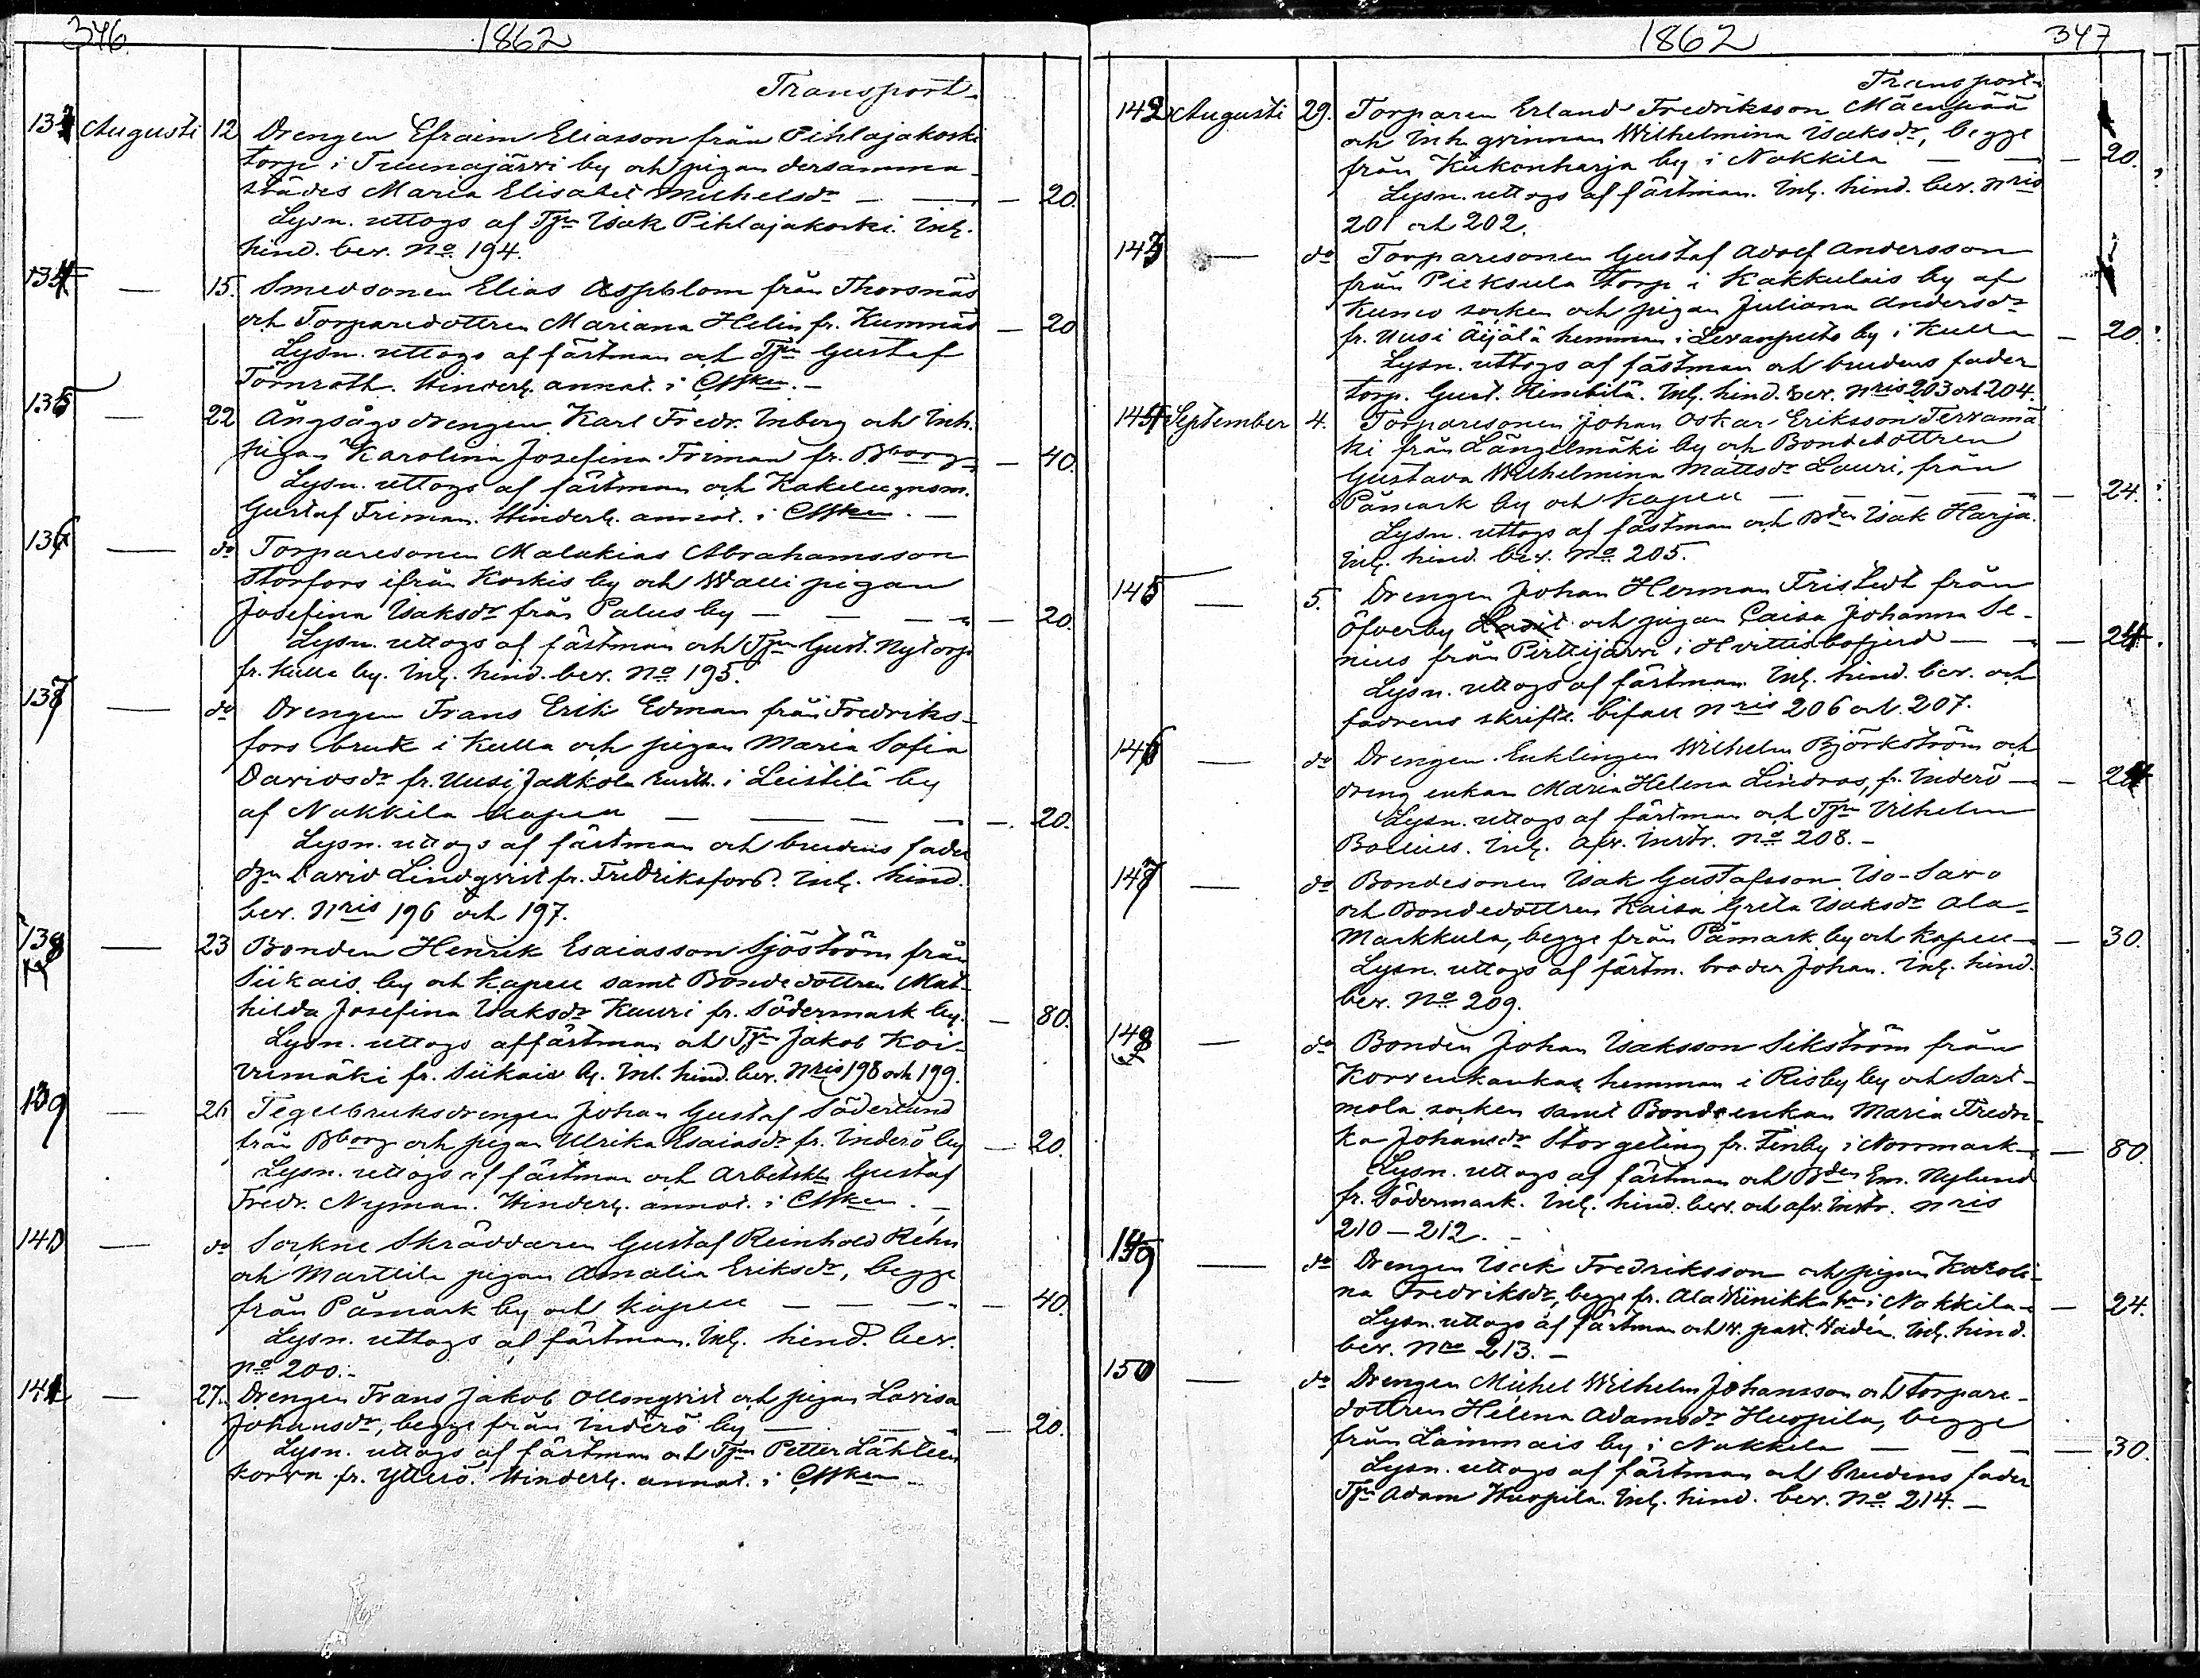 346.
1862
Transport.
133 Augusti 12 Drengen Efraim Eliasson från Pihlajakoski
torp i Tuunajärvi by och pigan dersamma-
städes Maria Elisabet Michelsdr — — — 20.
Lysn. uttogs af Tprn Isak Pihlajakoski. Inlg.
hind. bev. No. 194.
134 — 15. Smedsonen Elias Aspblom från Thorsnäs
och Torparedottren Mariana Helin fr. Kumnäs — 20
Lysn. uttogs af fästman och Tprn Gustaf
Törnroth. Hinderl. annot. i
135 — 22 Ångsågsdrengen Karl Fredr. Inberg och Inh.
pigan Karolina Josefina Friman fr. Bborg — 40.
Lysn. uttogs af fästman och Kakelugnsm.
Gustaf Friman. Hinderl. annot. i
136 — do Torparesonen Malakias Abrahamsson
Storfors ifrån Koskis by och Walli pigan
Josefina Isaksdr från Palus by — — — — 20.
Lysn. uttogs af fästman och Tprn Gust. Nytorp
fr. Kulla by. Inlg. hind. bev. No 195.
137 — do Drengen Frans Erik Edman från Fredriks-
fors bruk i Kulla och pigan Maria Sofia
Davidsdr fr. Uusi Jaakkola i Leistilä by
af Nakkila kapell — — — — —. 20.
Lysn. uttogs af fästman och brudens fader
David Lindqvist fr. Fredriksfors. Inlg. hind.
bev. Nris 196 och 197.
138 — 23 Bonden Henrik Esaiasson Sjöström från
Siikais by och kapell samt Bondedottren Mat-
hilda Josefina Isaksdr Kauri fr. Södermark by. — 80.
Lysn. uttogs af fästman och Tprn Jakob Koi-
vumäki fr. Siikais by. Inl. hind. bev. Nris 198 och 199.
139 — 26 Tegelbruksdrengen Johan Gustaf Söderlund
från Bborg och pigan Ulrika Esaiasdr fr. Inderö by — 20.
Lysn. uttogs af fästman och Arbetsk. Gustaf
Fredr. Nyman. Hinderl. annot. i
140 — do Sockne Skräddaren Gustaf Reinhold Rehn
och Marttila pigan Amalia Eriksdr, begge
från Påmark by och kapell — — — — 40.
Lysn. uttogs af fästman. Inlg. hind. bev.
No 200.-
141 — 27. Drengen Frans Jakob Ollonqvist och pigan Lovisa
Johansdr, begge från Inderö by — — — 20.
Lysn. uttogs af fästman och Tprn Petter Lähteen
korva fr. Ytterö. Hinderl. annot. i
1862
347
Transport.
142 Augusti 29. Torparen Erland Fredriksson Mäenpää
och Inh. qvinnan Wilhelmina Isaksdr, begge
från Kukonharja by i Nakkila — — — 20.
Lysn. uttogs af fästman. Inlg. hind. bev. Nris
201 och 202.
143 — do Torparesonen Gustaf Adolf Andersson
från Pieksula torp i Kakkulais by af
Kumo socken och pigan Juliana Andersdr
fr. Uusi Äijälä hemman i Levanpelto by i Kulla — 20.
Lysn. uttogs af fästman och brudens fader
torp. Gust. Inlg. hind. bev. Nris 203 och 204.
144 September 4. Torparesonen Johan Oskar Eriksson Tervamä
ki från Längelmäki by och Bondedottren
Gustava Wilhelmina Mattsdr Lauri, från
Påmark by och kapell — — — — — 24.
Lysn. uttogs af fästman och Bden Isak Harja.
Inlg. hind. bev. No 205.
145 — 5. Drengen Johan Herman Fristedt från
Öfverby och pigan Caisa Johanna Se-
nius från Perttijärvi i Hvittisbofjerd — — 24.
Lysn. uttogs af fästman. Inlg. hind. bev. och
fadrens skriftl. bifall Nris 206 och 207.
146 — do Drengen Enklingen Wilhelm Björkström och
dreng enkan Maria Helena Lindros, fr. Inderö — — 24
Lysn. uttogs af fästman och Tprn Vilhelm
Bolius. Inlg. afv. instr. No 208.-
147 — do Bondesonen Isak Gustafsson Iso-Savo
och Bondedottren Kaisa Greta Isaksdr Ala-
Markkula, begge från Påmark by och kapell — 30.
Lysn. uttogs af fästm. broder Johan. Inlg. hind.
bev. No 209.
148 — do Bonden Johan Isaksson Sikström från
Korvenkankas hemman i Risby by och Sast-
mola socken samt Bondeenkan Maria Fredri-
ka Johansdr Storgeting fr. Finby i Norrmark — 80.
Lysn. uttogs af fästman och Bden Em. Nylund
fr. Södermark. Inlg. hind. bev. och afv. instr. Nris
210 — 212. -
149 — do Drengen Isak Fredriksson och pigan Karoli-
na Fredriksdr, begge fr. Ala Wiinikka i Nakkila — 24.
Lysn. uttogs af fästman och v. past. Wadén. Inlg. hind.
bev. Nro 213. -
150 — do Drengen Michel Wilhelm Johansson och torpare-
dottren Helena Adamsdr Huopila, begge
från Lammais by i Nakkila — — — — 30.
Lysn. uttogs af fästman och brudens fader
Tprn Adam Huopila. Inlg. hind. bev. No. 214. -